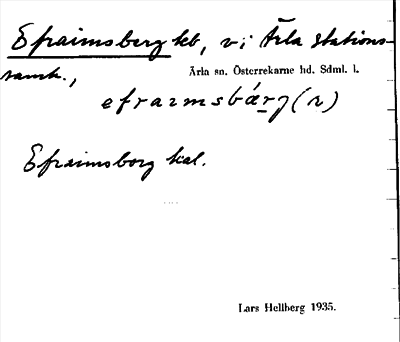 Efraimsberg kb, v; Ärla stations-
samh.,
Ärla sn. Österrekarne hd. Sdml. l.
efraimsbärj(r)
Efraimsborg kal.
Lars Hellberg 1935.